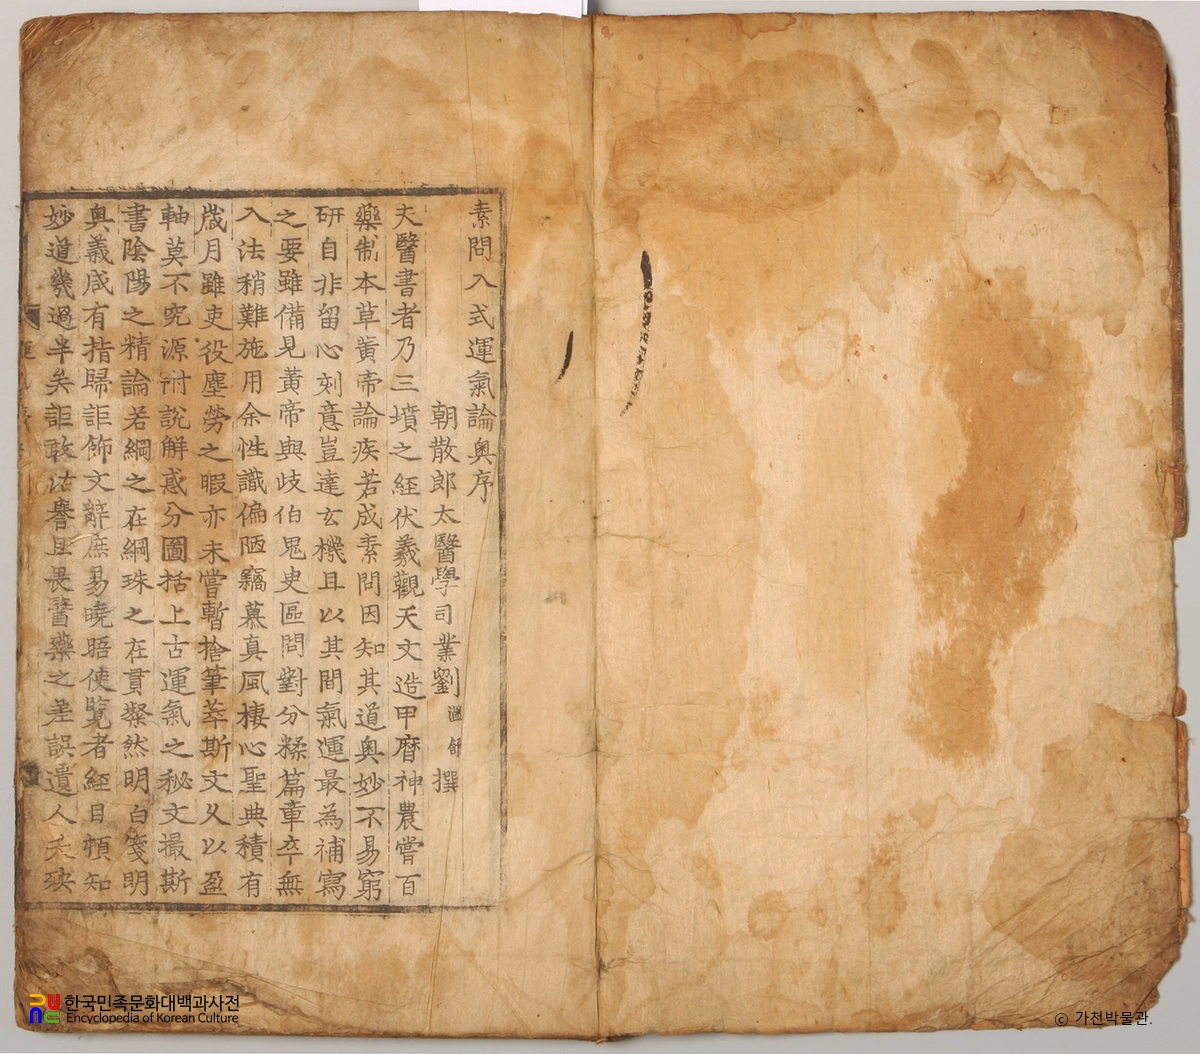 素問入式運氣論奧序
朝散郎太醫學司業劉溫舒撰
夫醫書者乃三墳之經伏羲觀天文造甲曆神農嘗百
藥制本草黃帝論疾若成素問因知其道奧妙不易窮
研自非留心刻意豈達玄機且以其間氣運最為補寫
之要雖備見黃帝與歧伯鬼史區問對分糅篇章卒無
入法稍難施用余性識偏陋竊慕真風棲心聖典積有
歲月雖吏役塵勞之暇亦未嘗暫捨筆萃斯文久以盈
軸莫不究源附說解惑分圖括上古運氣之秘文撮斯
書陰陽之精論若綱之在綱珠之在貫粲然明白箋明
奧義咸有指歸詎飾文辭庶易曉晤使覽者經目頓知
妙道幾過半矣詎敢沽譽且畏醫藥之差誤遺人夭殃
한국민족문화대백과사전
Encyclopedia of Korean Culture
ⓒ 가천박물관.